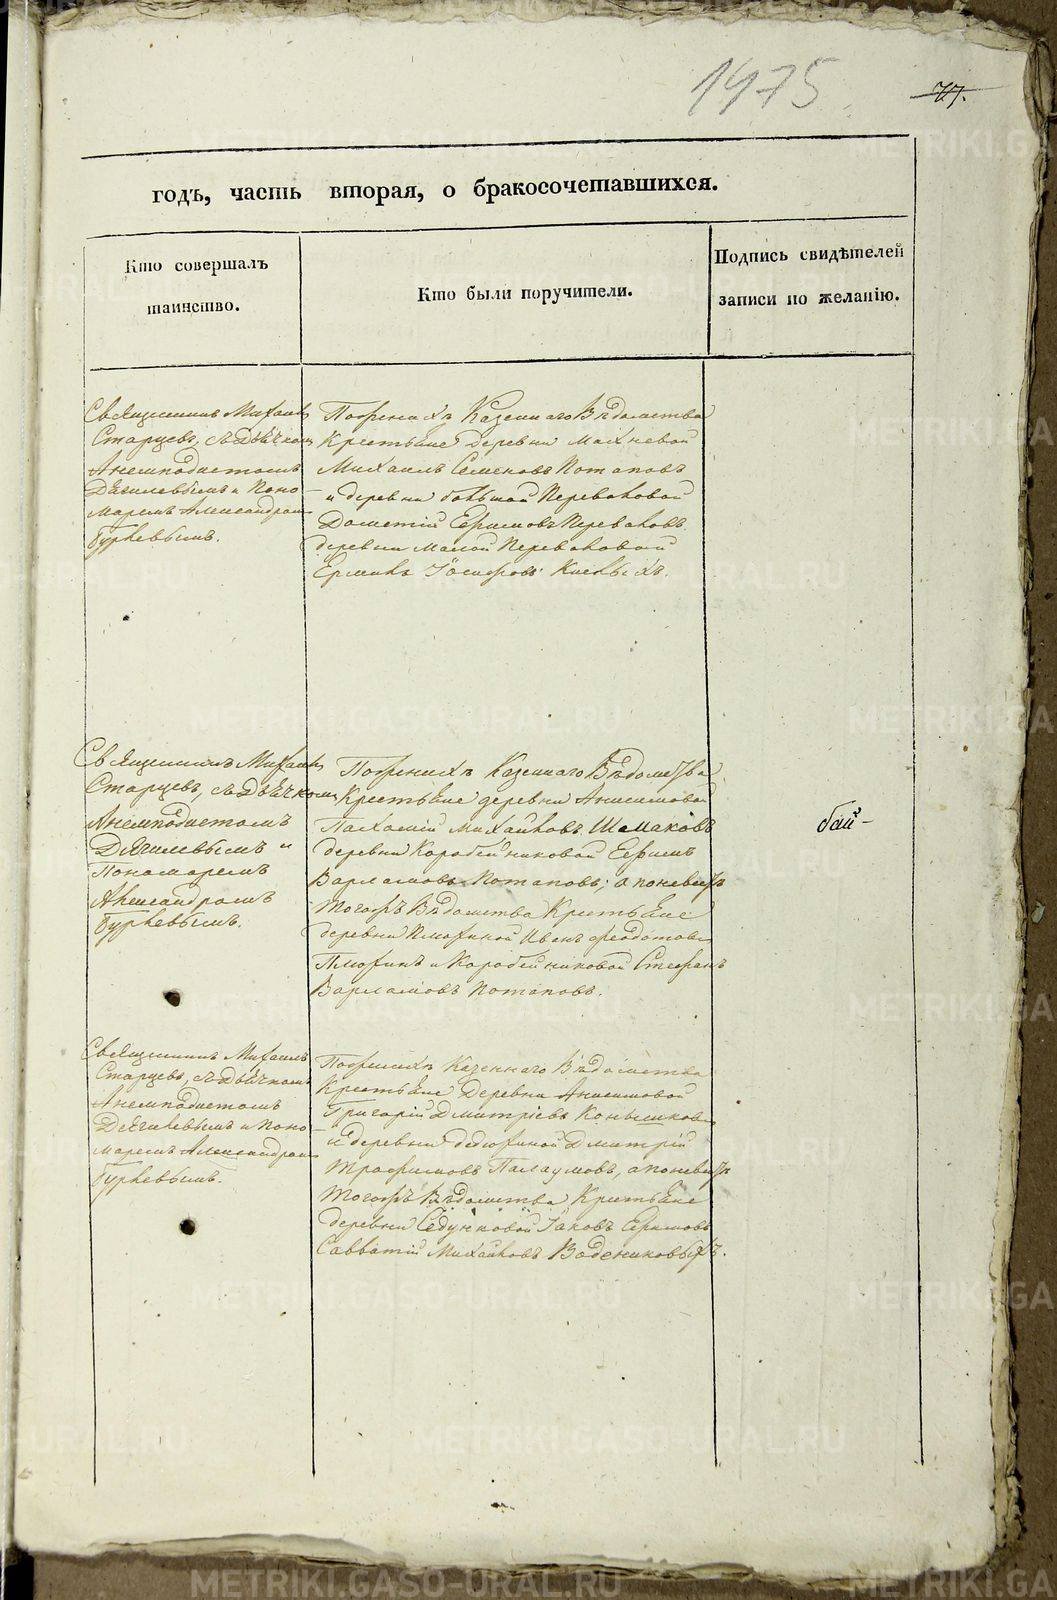 1475
77.
годъ, часть вторая, о бракосочетавшихся.
Кто совершалъ
таинство.
Кто были поручители.
Подпись свидѣтелей
записи по желанію.
Священникъ Михаилъ
Старцевъ, съ дьячкомъ
Анемподистомъ
Дягилевымъ и Поно
маремъ Александромъ
Бурковымъ.
Поженихѣ Казеннаго Вѣдомства
Крестьяне деревни Махневой
Михаилъ Семеновъ Потаповъ
и деревни большой Переваловой
Дометій Ефимовъ Переваловъ
деревни малой Переваловой
Ермилъ Іосифовъ
Священникъ Михаилъ
Старцевъ, съ дьячкомъ
Анемподистомъ
Дягилевымъ и
Пономаремъ
Александромъ
Бурковымъ.
Поженихѣ Казеннаго Вѣдомства
Крестьяне деревни Анисимовой
Пахомій Михайловъ Шемаковъ
деревни Коробейниковой Ефимъ
Варламовъ Потаповъ; а поневѣстѣ
тогожъ Вѣдомства Крестьяне
деревни Плюхиной Иванъ Феодотовъ
Плюхинъ и Коробейниковой Стефанъ
Варламовъ Потаповъ.
бай-
Священникъ Михаилъ
Старцевъ, съ дьячкомъ
Анемподистомъ
Дягилевымъ и Поно
маремъ Александромъ
Бурковымъ.
Поженихѣ Казеннаго Вѣдомства
Крестьяне Деревни Анисимовой
Григорій Дмитріевъ
и деревни Дедюхиной Дмитрій
Трофимовъ Палаумовъ, а поневѣстѣ
тогожъ Вѣдомства Крестьяне
деревни Седунковой Іаковъ Ефимовъ
Савватій Михайловъ Водениковыхъ.
METRIKI.GASO-URAL.RU